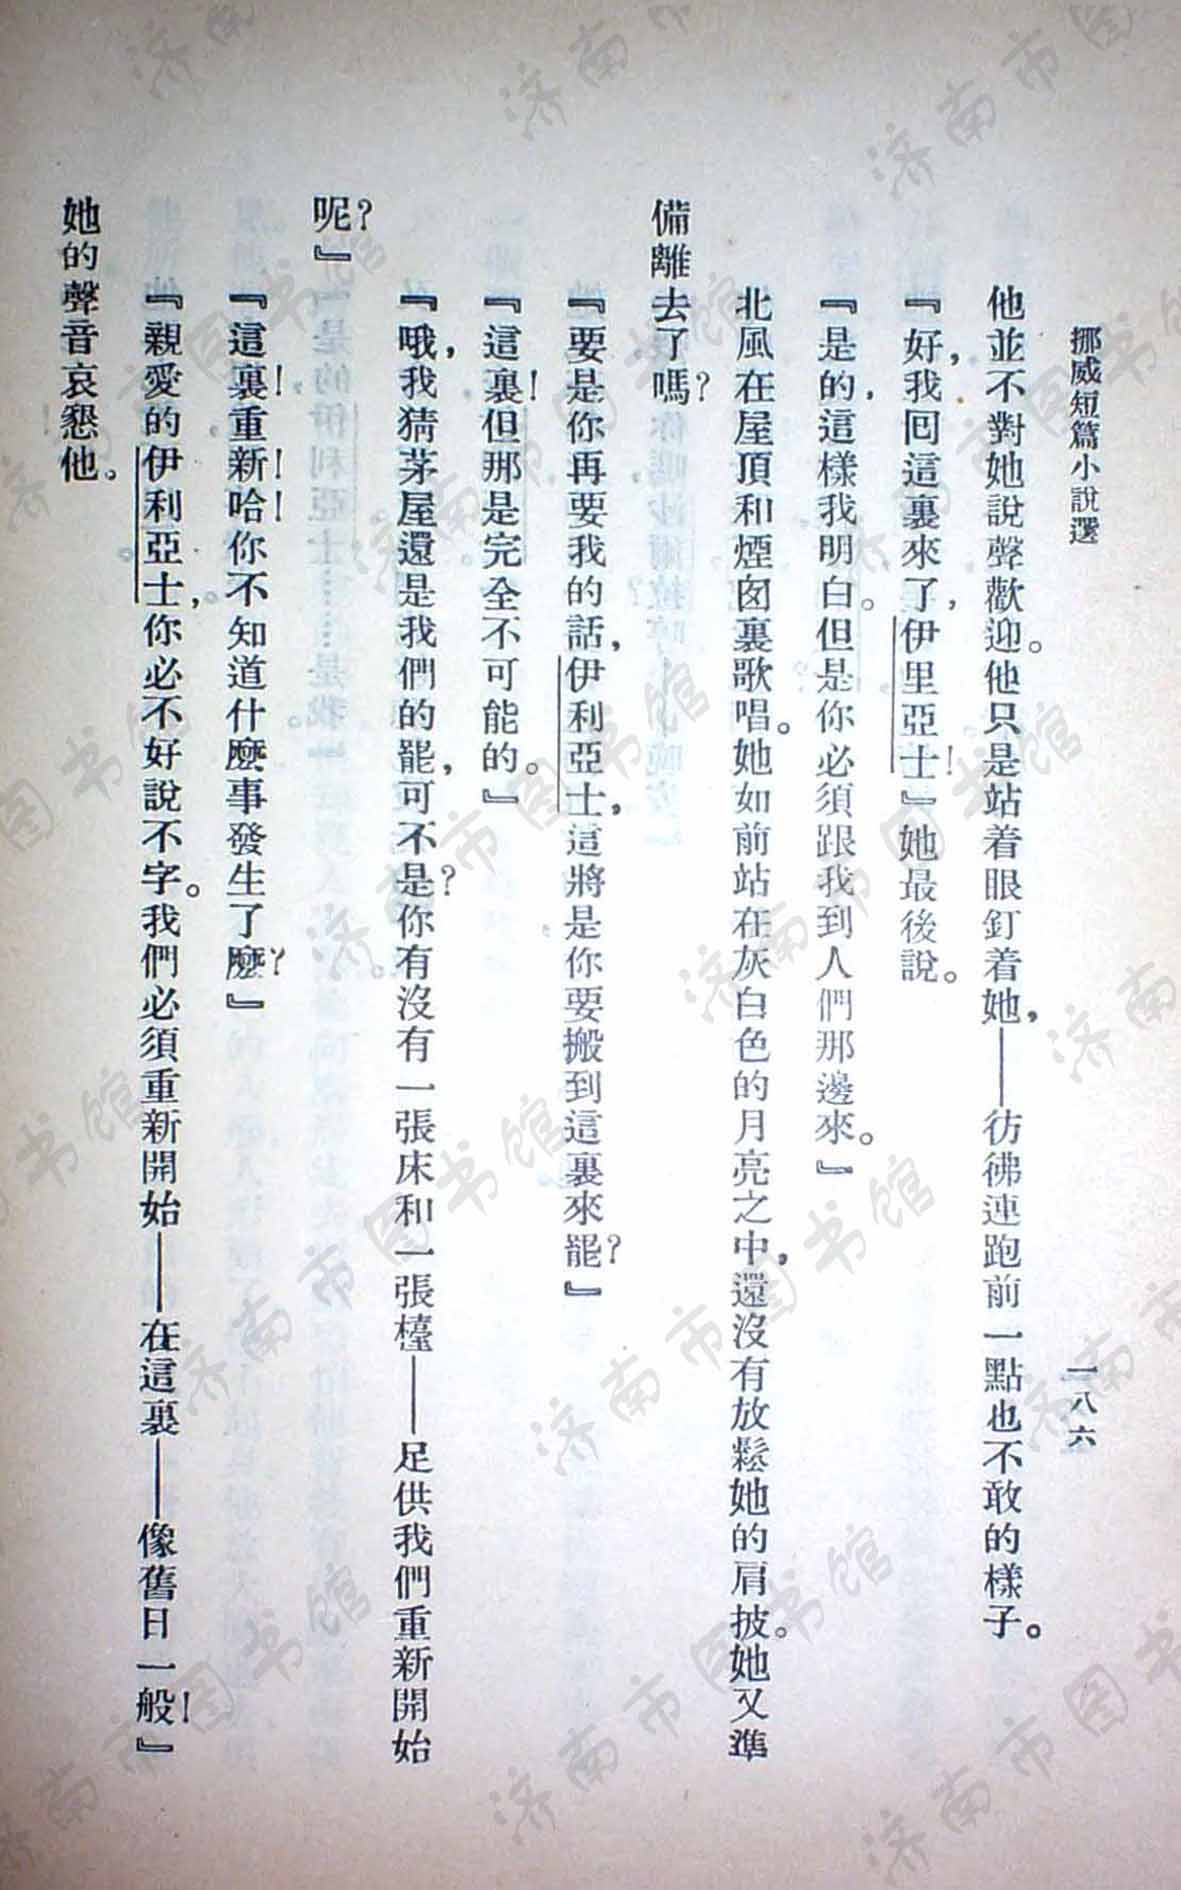 挪威短篇小說選
一八六
他並不對她說聲歡迎。他只是站着眼釘着她，——彷彿連跑前一點也不敢的樣子。
『好，我回這裏來了，伊里亞士！』她最後說。
『是的，這樣我明白。但是你必須跟我到人們那邊來。』
北風在屋頂和煙囱裏歌唱。她如前站在灰白色的月亮之中，還沒有放鬆她的肩披。她又準
備離去了嗎？
『要是你再要我的話，伊利亞士，這將是你要搬到這裏來罷？』
『這裏！但那是完全不可能的。』
『哦，我猜茅屋還是我們的罷，可不是？你有沒有一張床和一張檯——足供我們重新開始
呢？』
『這裏！重新！哈！你不知道什麼事發生了麼？』
『親愛的伊利亞士，你必不好說不字。我們必須重新開始——在這裏——像舊日一般！』
她的聲音哀懇他。
济南市图书馆